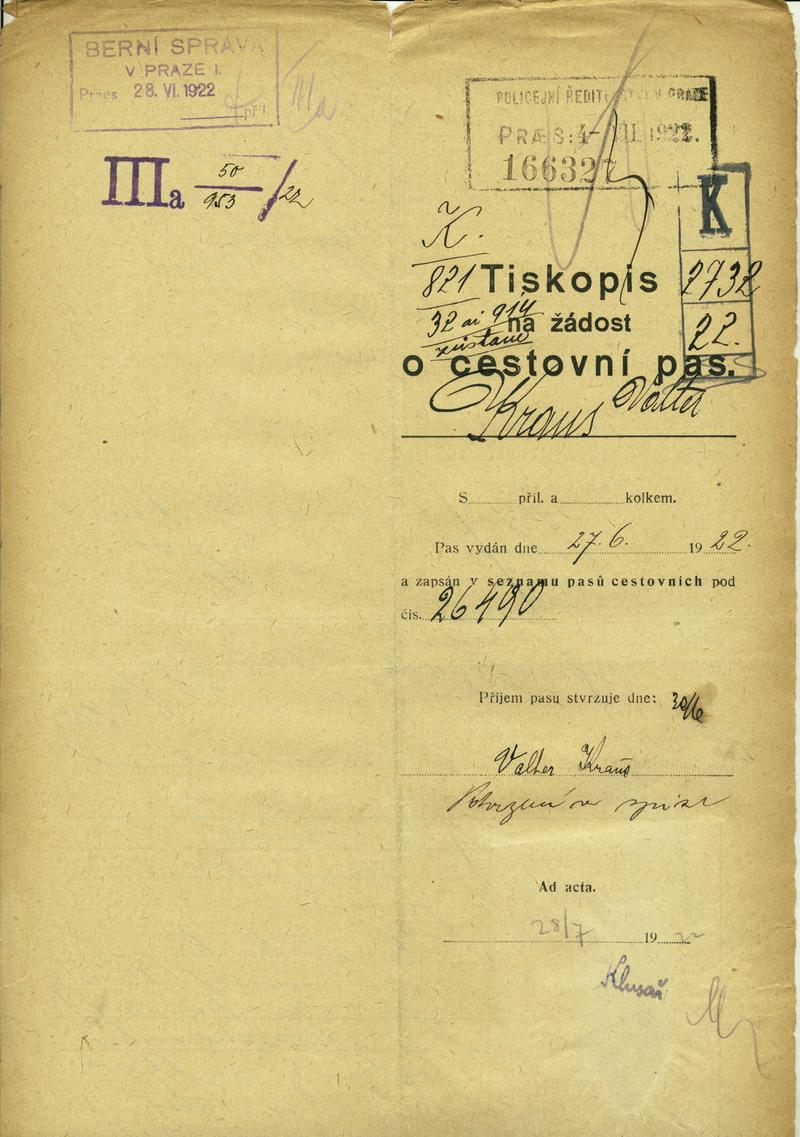 BERNÍ SPRÁVA
V PRAZE I.
Praes 28. VI. 1922
příl.
IIIa
IIIa 50/953 / 22
POLICEJNÍ ŘEDITELSTVÍ V PRAZE
PRAES: 4- VII. 1922.
166327
K
K.
821 Tiskopis 2732
32 ai 914 na žádost 22.
zůstane
o cestovní pas.
Kraus Valter
S příl. a kolkem.
Pas vydán dne 27. 6. 1922.
a zapsán v seznamu pasů cestovních pod
čís. 26490
Příjem pasu stvrzuje dne: 30/6
Valter Kraus
Potvrzení v spise
Ad acta.
28/7 1922